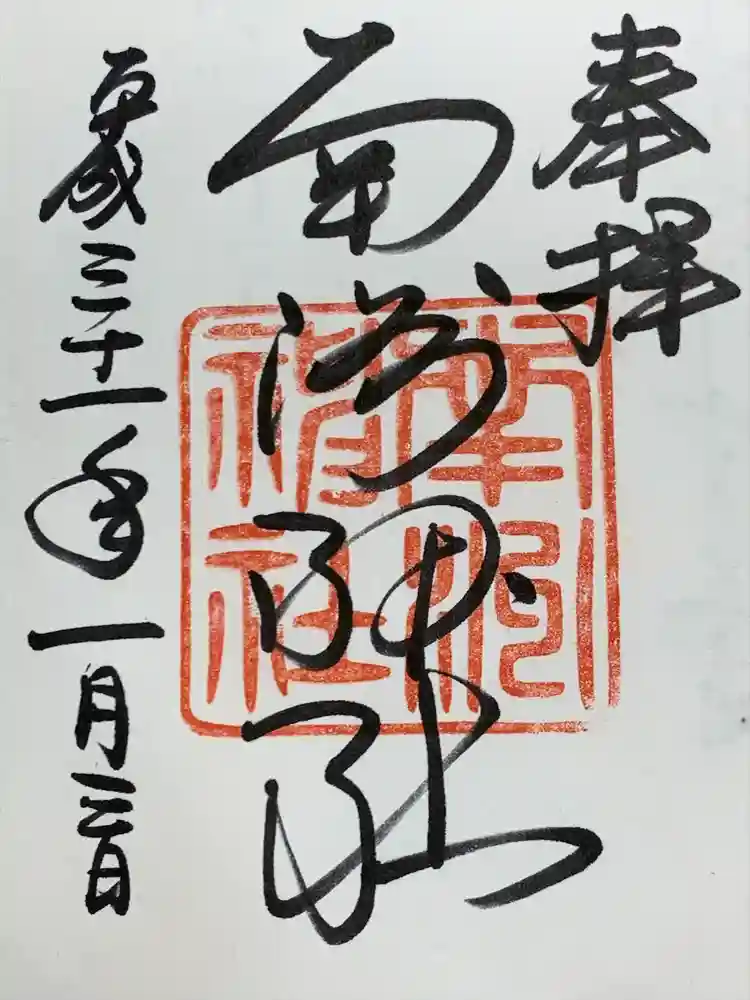 奉拝
南洲神社
平成三十一年一月三日
南洲
神社